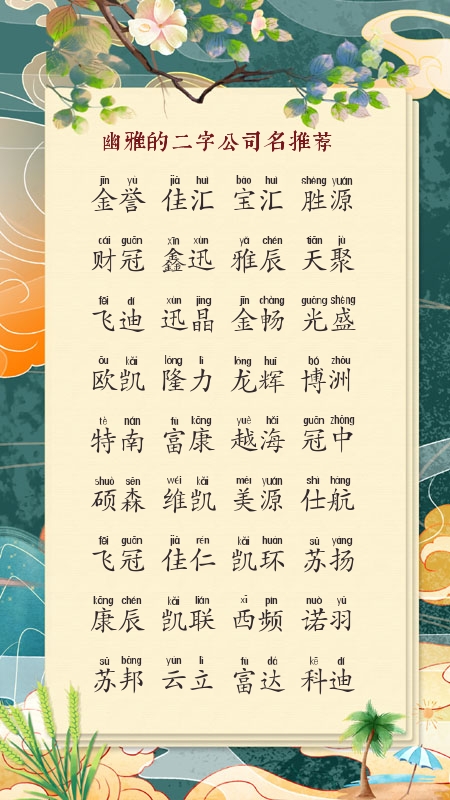 幽雅的二字公司名推荐
jīn yù jiā huì bǎo huì shèng yuán
金誉 佳汇 宝汇 胜源
cái guān xīn xùn yǎ chén tiān jù
财冠 鑫迅 雅辰 天聚
fēi dí xùn jīng jīn chàng guāng shèng
飞迪 迅晶 金畅 光盛
ōu kǎi lóng lì lóng huī bó zhōu
欧凯 隆力 龙辉 博洲
tè nán fù kāng yuè hǎi guān zhōng
特南 富康 越海 冠中
shuò sēn wéi kǎi měi yuán shì háng
硕森 维凯 美源 仕航
fēi guān jiā rén kǎi huán sū yáng
飞冠 佳仁 凯环 苏扬
kāng chén kǎi lián xī pín nuò yǔ
康辰 凯联 西频 诺羽
sū bāng yún lì fù dá kē dí
苏邦 云立 富达 科迪